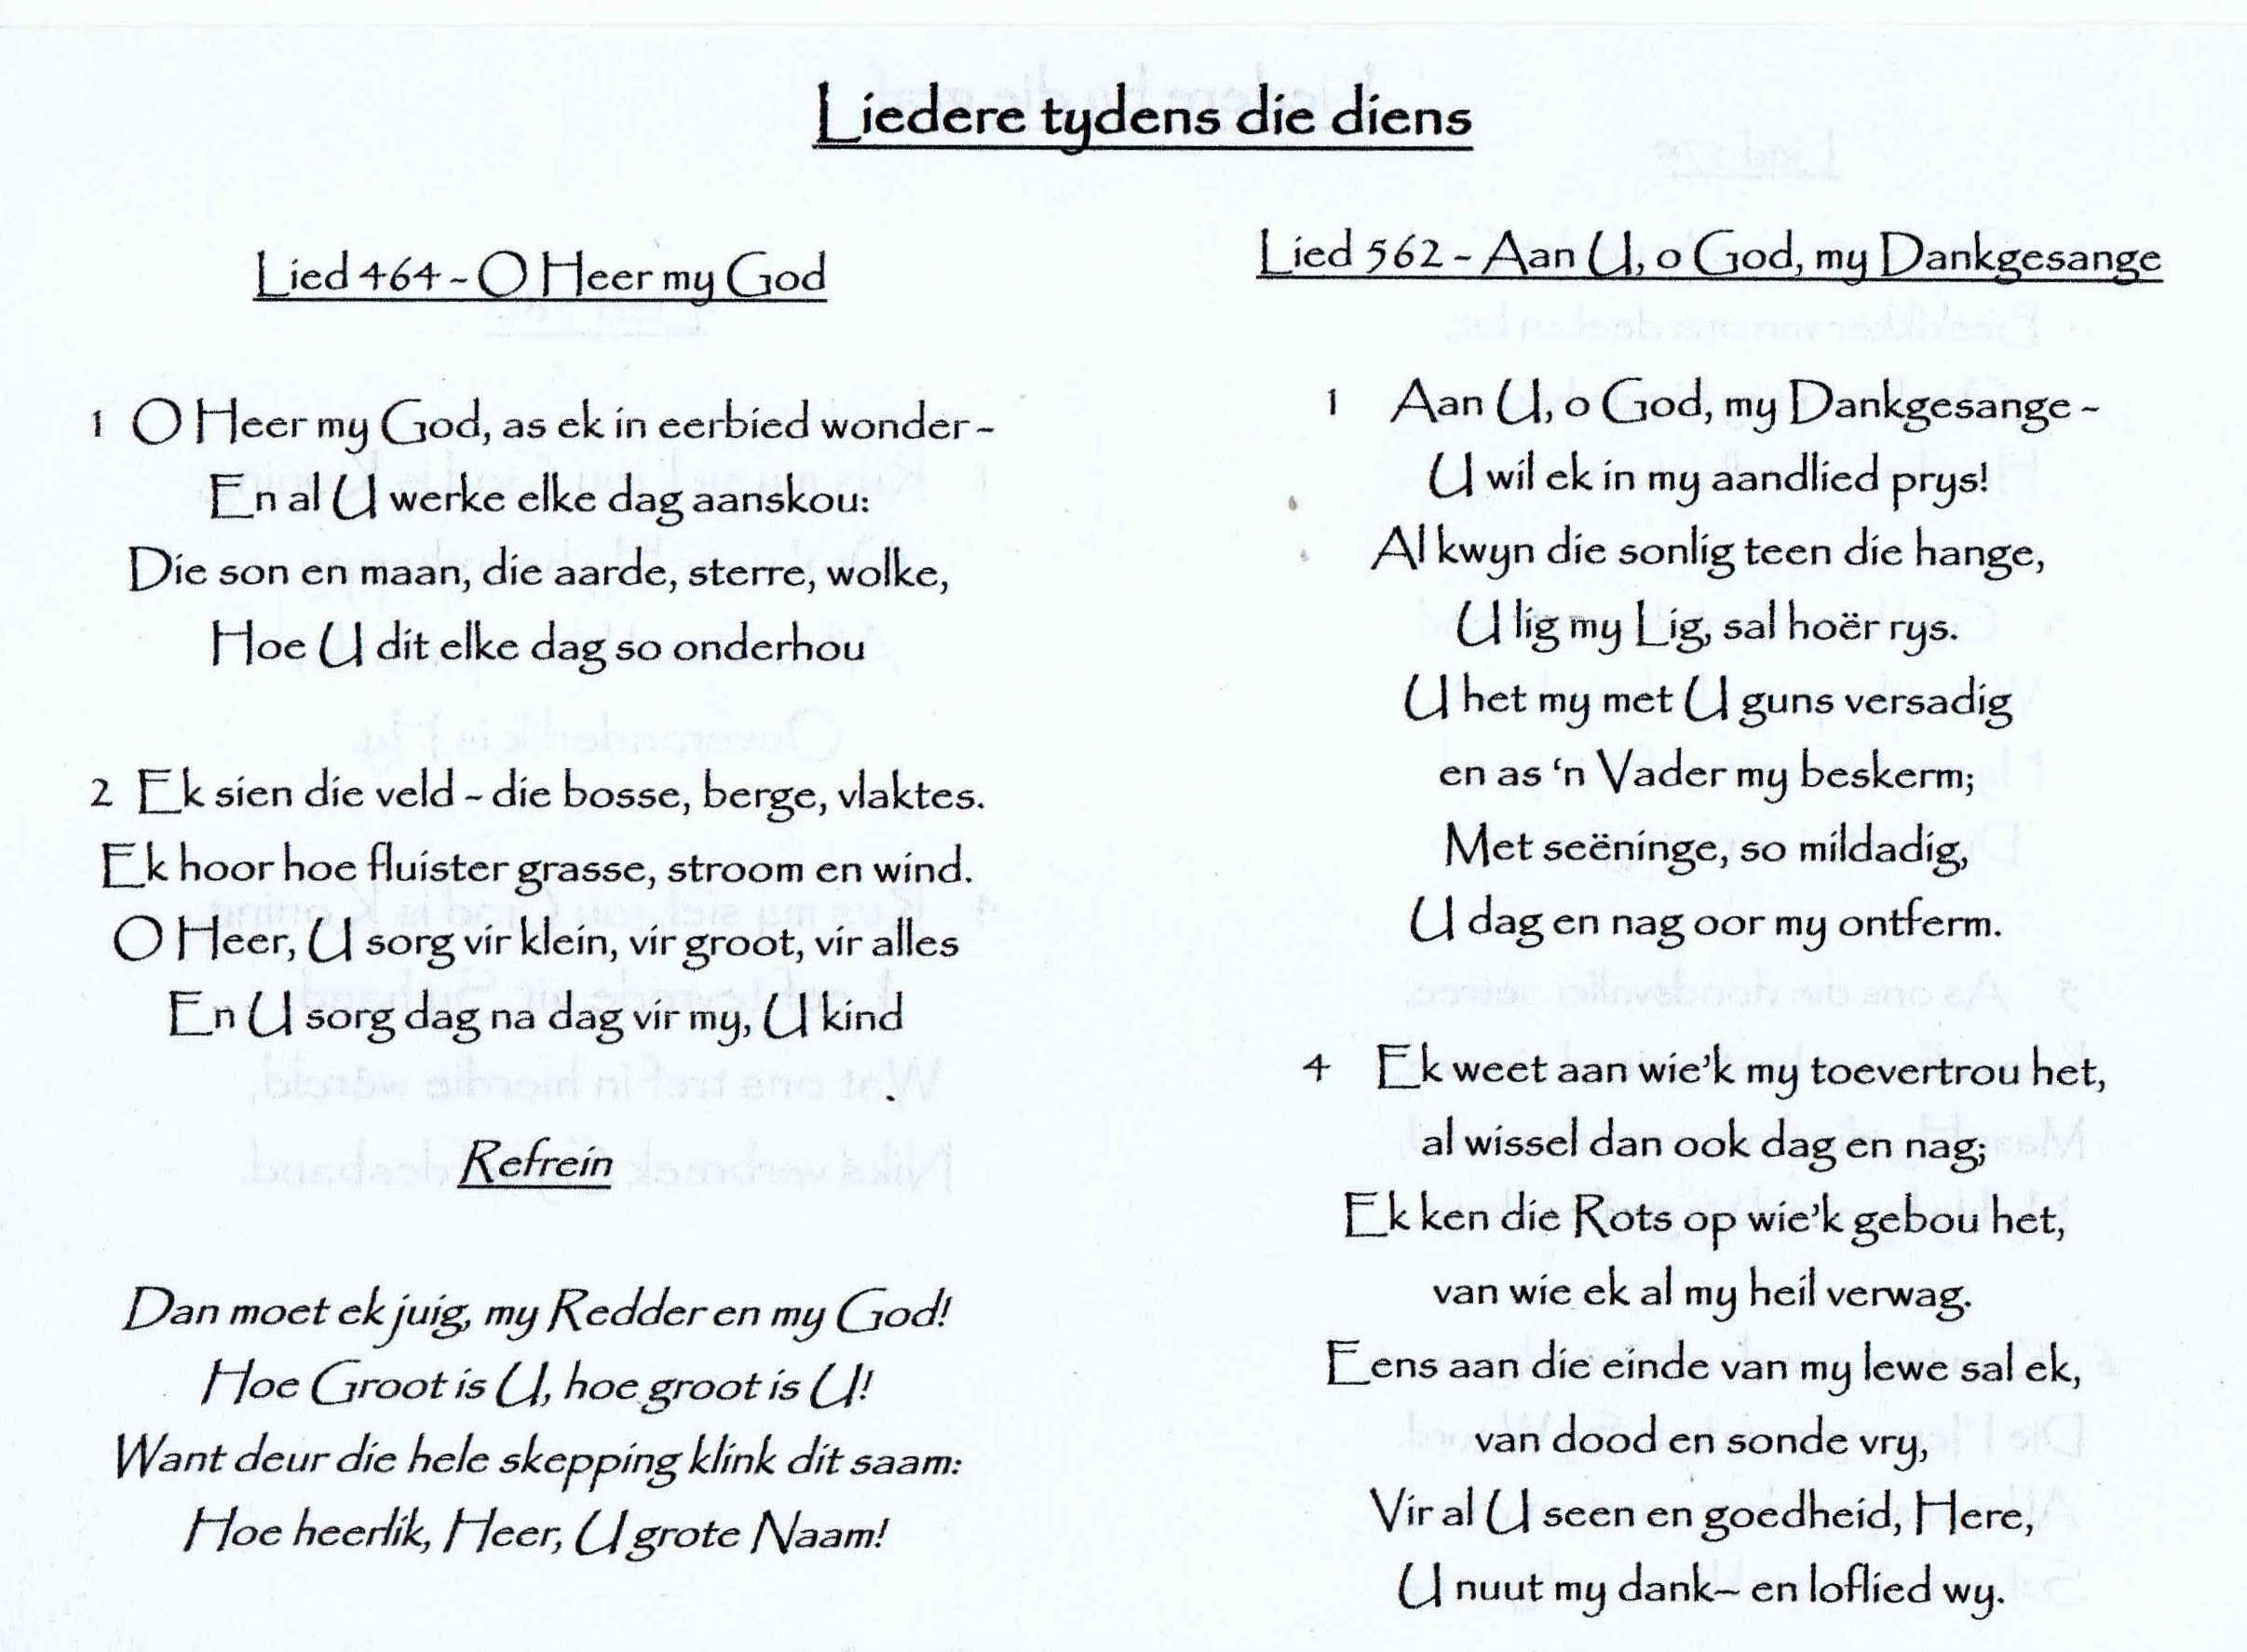 Liedere tydens die diens
Lied 464 ~ O Heer my God
1 O Heer my God, as ek in eerbied wonder ~
En al U werke elke dag aanskou:
Die son en maan, die aarde, sterre, wolke,
Hoe U dit elke dag so onderhou
2 Ek sien die veld ~ die bosse, berge, vlaktes.
Ek hoor hoe fluister grasse, stroom en wind.
O Heer, U sorg vir klein, vir groot, vir alles
En U sorg dag na dag vir my, U kind
Refrein
Dan moet ek juig, my Redder en my God!
Hoe Groot is U, hoe groot is U!
Want deur die hele skepping klink dit saam:
Hoe heerlik, Heer, U grote Naam!
Lied 562 ~ Aan U, o God, my Dankgesange
1 Aan U, o God, my Dankgesange ~
U wil ek in my aandlied prys!
Al kwyn die sonlig teen die hange,
U lig my Lig, sal hoër rys.
U het my met U guns versadig
en as ‘n Vader my beskerm;
Met seëninge, so mildadig,
U dag en nag oor my ontferm.
4 Ek weet aan wie’k my toevertrou het,
al wissel dan ook dag en nag;
Ek ken die Rots op wie’k gebou het,
van wie ek al my heil verwag.
Eens aan die einde van my lewe sal ek,
van dood en sonde vry,
Vir al U seen en goedheid, Here,
U nuut my dank~ en loflied wy.